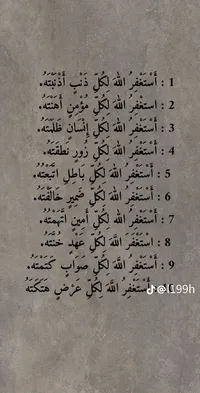 1 : أَسْتَغْفِرُ اللهَ لِكُلِّ ذَنْبٍ أَذْنَبْتَهُ.
2 : استَغْفِرُ اللهَ لِكُلِّ مُؤْمِنٍ أَهَنْتَهُ.
3 : أَسْتَغْفِرُ اللهَ لِكُلِّ إِنْسَانٍ ظَلَمْتَهُ.
4 : أَسْتَغْفِرُ اللهَ لِكُلِّ زُورٍ نَطَقْتَهُ.
5 : أَسْتَغْفِرُ اللهَ لِكُلِّ بَاطِلٍ اتَّبَعْتُهُ.
6 : أَسْتَغْفِرُ اللهَ لِكُلِّ ضَمِيرٍ خَالَفْتَهُ.
7 : أَسْتَغْفِرُ الله لِكُلِّ أَمِينٍ اتَّهَمْتُهُ.
8 : اسْتَغْفَرَ اللَّهَ لِكُلِّ عَهْدٍ خُنْتَهُ.
9 : أَسْتَغْفِرُ اللَّهَ لِكُلِّ صَوَابٍ كَتَمْتَهُ.
: أَسْتَغْفِرُ اللَّهَ لِكُلِّ عَرْضٍ هَتَكْتَهُ
@l199h